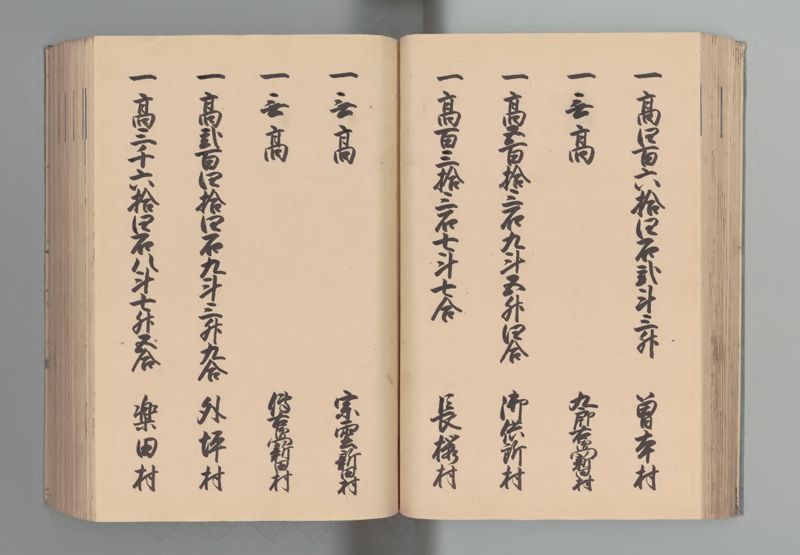 一 高四百六拾四石弐斗三升 曽本村
一 無高 九郎右衛門新田村
一 高五百拾三石九斗五升四合 御供所村
一 高百三拾三石七斗七合 長桜村
一 無高 宗雲新田村
一 無高 伝右衛門新田村
一 高弐百四拾四石九斗三升九合 外坪村
一 高二千六拾四石八斗七升五合 楽田村